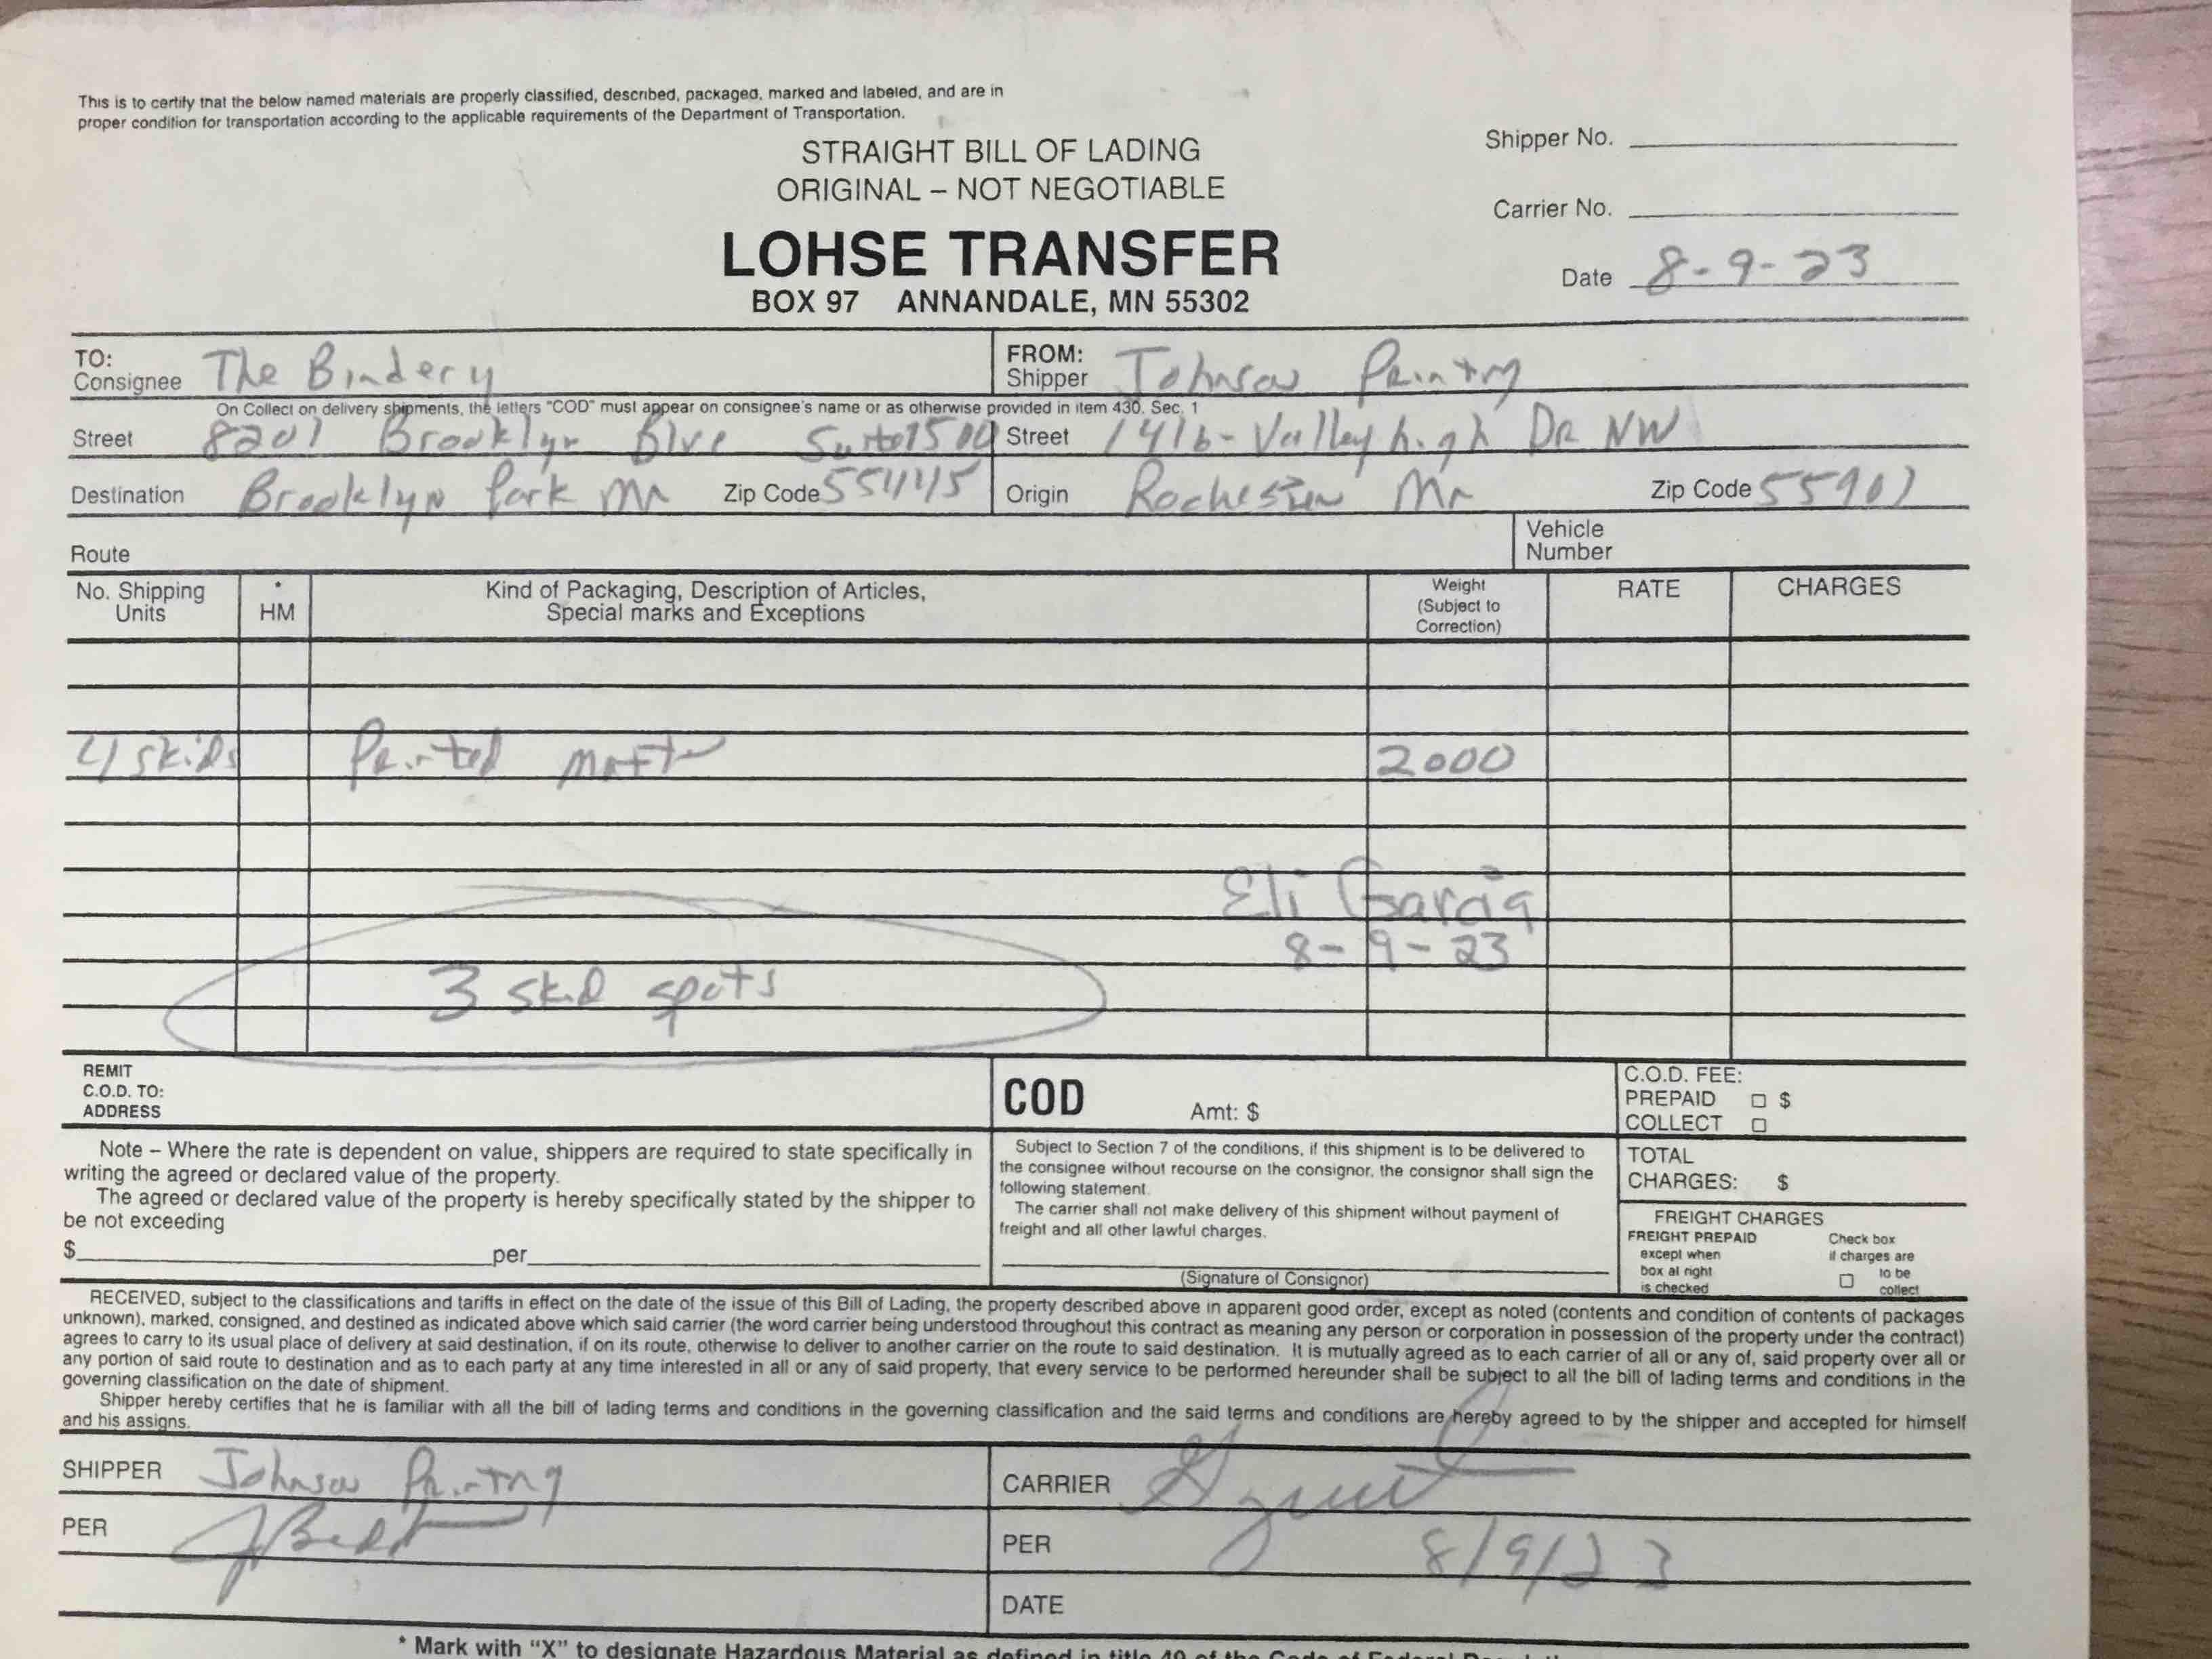 This is to certify that the below named materials are properly classified, described, packaged, marked and labeled, and are in
proper condition for transportation according to the applicable requirements of the Department of Transportation.
STRAIGHT BILL OF LADING
ORIGINAL – NOT NEGOTIABLE
LOHSE TRANSFER
BOX 97 ANNANDALE, MN 55302
Shipper No.
Carrier No.
Date 8-9-23
TO:
Consignee The Bindery
FROM:
Shipper Johnson Printing
On Collect on delivery shipments, the letters "COD" must appear on consignee's name or as otherwise provided in item 430, Sec. 1
Street 8201 Brooklyn Blve Suite 1500
Street 1416- Valley high DR NW
Destination Brooklyn Park Mn Zip Code 55445
Origin Rochester Mn Zip Code 55901
Route
Vehicle
Number
No. Shipping
Units
*
HM
Kind of Packaging, Description of Articles,
Special marks and Exceptions
Weight
(Subject to
Correction)
RATE
CHARGES
4 skids Printed matter 2000
Eli Garcia
8-9-23
3 skid spots
REMIT
C.O.D. TO:
ADDRESS
COD Amt: $
C.O.D. FEE:
PREPAID $
COLLECT
Note – Where the rate is dependent on value, shippers are required to state specifically in
writing the agreed or declared value of the property.
The agreed or declared value of the property is hereby specifically stated by the shipper to
be not exceeding
$ per
Subject to Section 7 of the conditions, if this shipment is to be delivered to
the consignee without recourse on the consignor, the consignor shall sign the
following statement.
The carrier shall not make delivery of this shipment without payment of
freight and all other lawful charges.
(Signature of Consignor)
TOTAL
CHARGES: $
FREIGHT CHARGES
FREIGHT PREPAID
except when
box at right
is checked
Check box
if charges are
to be
collect
RECEIVED, subject to the classifications and tariffs in effect on the date of the issue of this Bill of Lading, the property described above in apparent good order, except as noted (contents and condition of contents of packages
unknown), marked, consigned, and destined as indicated above which said carrier (the word carrier being understood throughout this contract as meaning any person or corporation in possession of the property under the contract)
agrees to carry to its usual place of delivery at said destination, if on its route, otherwise to deliver to another carrier on the route to said destination. It is mutually agreed as to each carrier of all or any of, said property over all or
any portion of said route to destination and as to each party at any time interested in all or any of said property, that every service to be performed hereunder shall be subject to all the bill of lading terms and conditions in the
governing classification on the date of shipment.
Shipper hereby certifies that he is familiar with all the bill of lading terms and conditions in the governing classification and the said terms and conditions are hereby agreed to by the shipper and accepted for himself
and his assigns.
SHIPPER Johnson Printing
CARRIER
PER
PER 8/9/23
DATE
* Mark with "X" to designate Hazardous Material as defined in title 49 of the Code of Federal